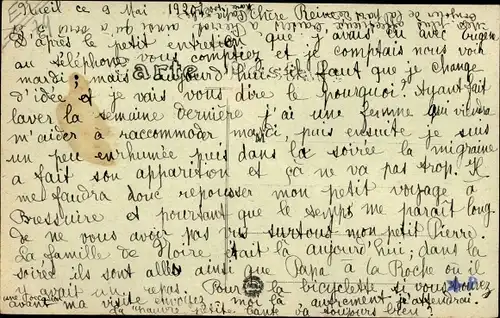 Breuil ce 9 Mai 1920 Chère Reine
D'après le petit entretien que j'avais eu avec Eugène
au téléphone vous comptiez et je comptais vous voir
mardi; mais aujourd'hui il faut que je change
d'idée et je vais vous dire le pourquoi? Ayant fait
laver la semaine dernière j'ai une femme qui viendra
m'aider à raccommoder mardi, puis ensuite je suis
un peu enrhumée puis dans la soirée la migraine
a fait son apparition et ça ne va pas trop. Il
me faudra donc repousser mon petit voyage à
Bressuire et pourtant que le temps me paraît long
de ne vous avoir pas vu surtout mon petit Pierre.
La famille de Noire était là aujourd'hui; dans la
soirée ils sont allés ainsi que Papa à la Roche où il
y avait un repas. Pour la bicyclette si vous pouvez
une occasion
avant ma visite envoyez moi là autrement j'attendrai.
La pauvre petite va toujours bien?